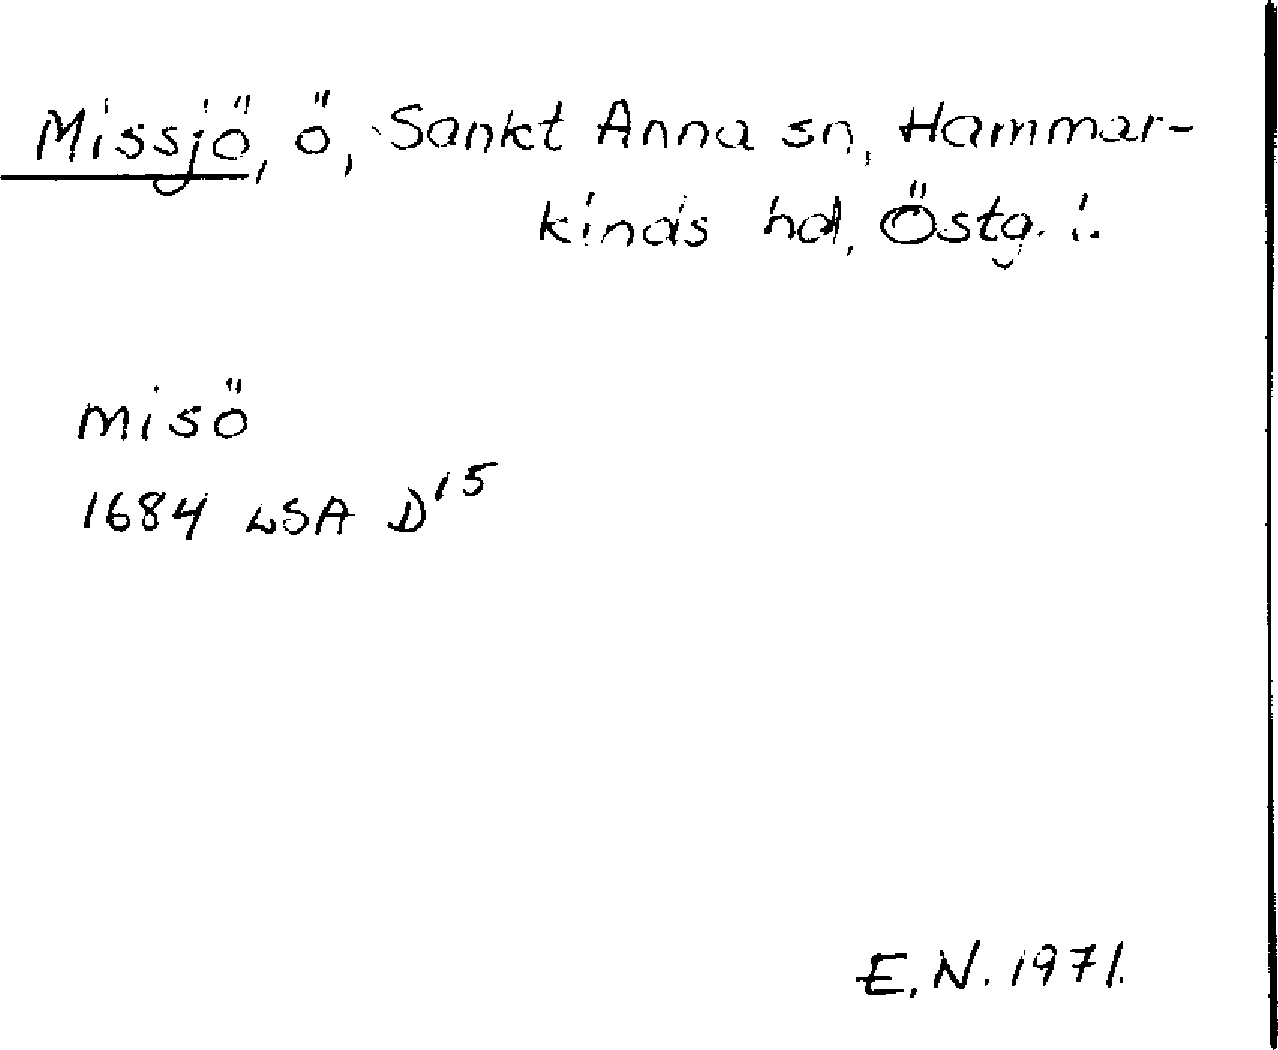 Missjö, ö, Sankt Anna sn, Hammar-
kinds hd, Östg. l.
misö
1684 LSA D15
E.N. 1971.